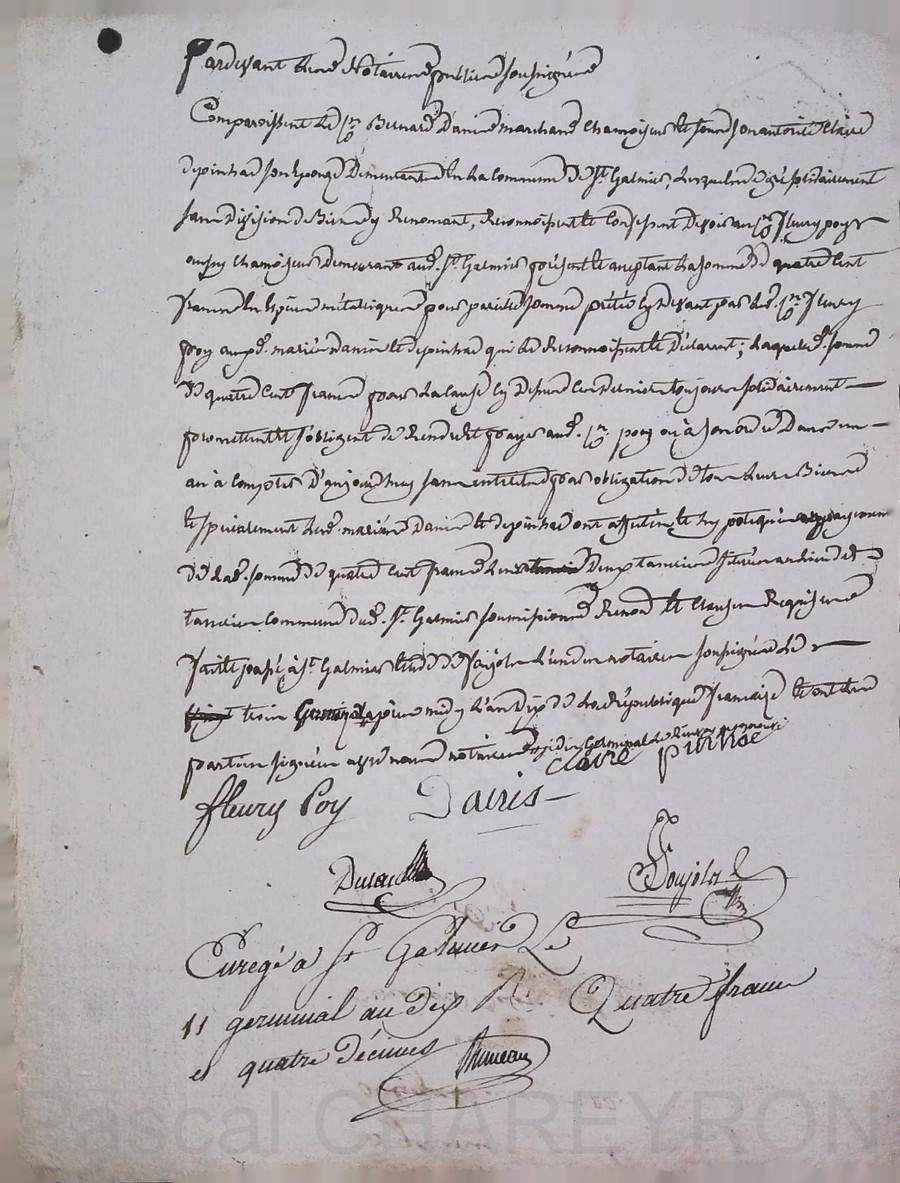 Pardevant les Notaires publics soussignés
Comparoissent le sr Bernard Danis marchand chamoiseur et sous son autorité Claire
depintrad son épouze Demeurants en la commune de St Galmier, lesquels de gré solidairement
sans Division de Biens y Renonçant, Reconnoissent et Confessent Devoir au sr fleury poy
aussy chamoiseur Demeurant aud. St Galmier présent et acceptant la somme de quatre cent
francs En Espèces métalliques pour pareille somme prêtée cy devant par led. sr fleury
poy auxd. mariés danis et depintrad qui le Reconnoissent et Déclarent ; laquelle d. somme
de quatre cent francs pour la cause cy Dessus ces derniers toujours solidairement
promettent et s'obligent de Rendre et payer aud. sr poy ou à son ordre Dans un
an à compter D'aujourd'huy sans intérêt pour obligation de tous leurs Biens
et spécialement lesd. mariés Danis et depintrad ont affecté et hypotéqué au payement
de lad. somme de quatre cent francs leurs Deux tanneries situées au lieu de
tanneries Commune dud. St Galmier soumissions Renonc. et Clauses Requises
fait et passé à St Galmier Etude de Poujols l'un des notaires soussignés le
trois après midy L'an Dix de la République française et ont les
parties signées avec nous notaires dix Germinal
Claire
fleury Poy Danis
Poujols
Enregé a St Galmier Le
11 germinal an dix R. Quatre francs
et quatre décimes
Pascal CHAREYRON